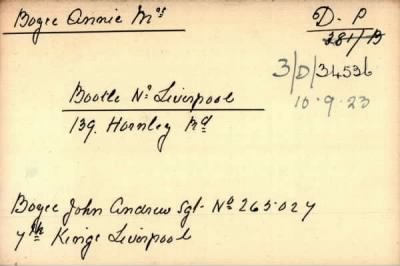 Bogee Annie Mrs
D. P
381/B
3/D/34536
10.9.23
Bootle Nr Liverpool
139. Hornley Rd
Bogee John Andrew Sgt. No 265027
7th Kings Liverpool